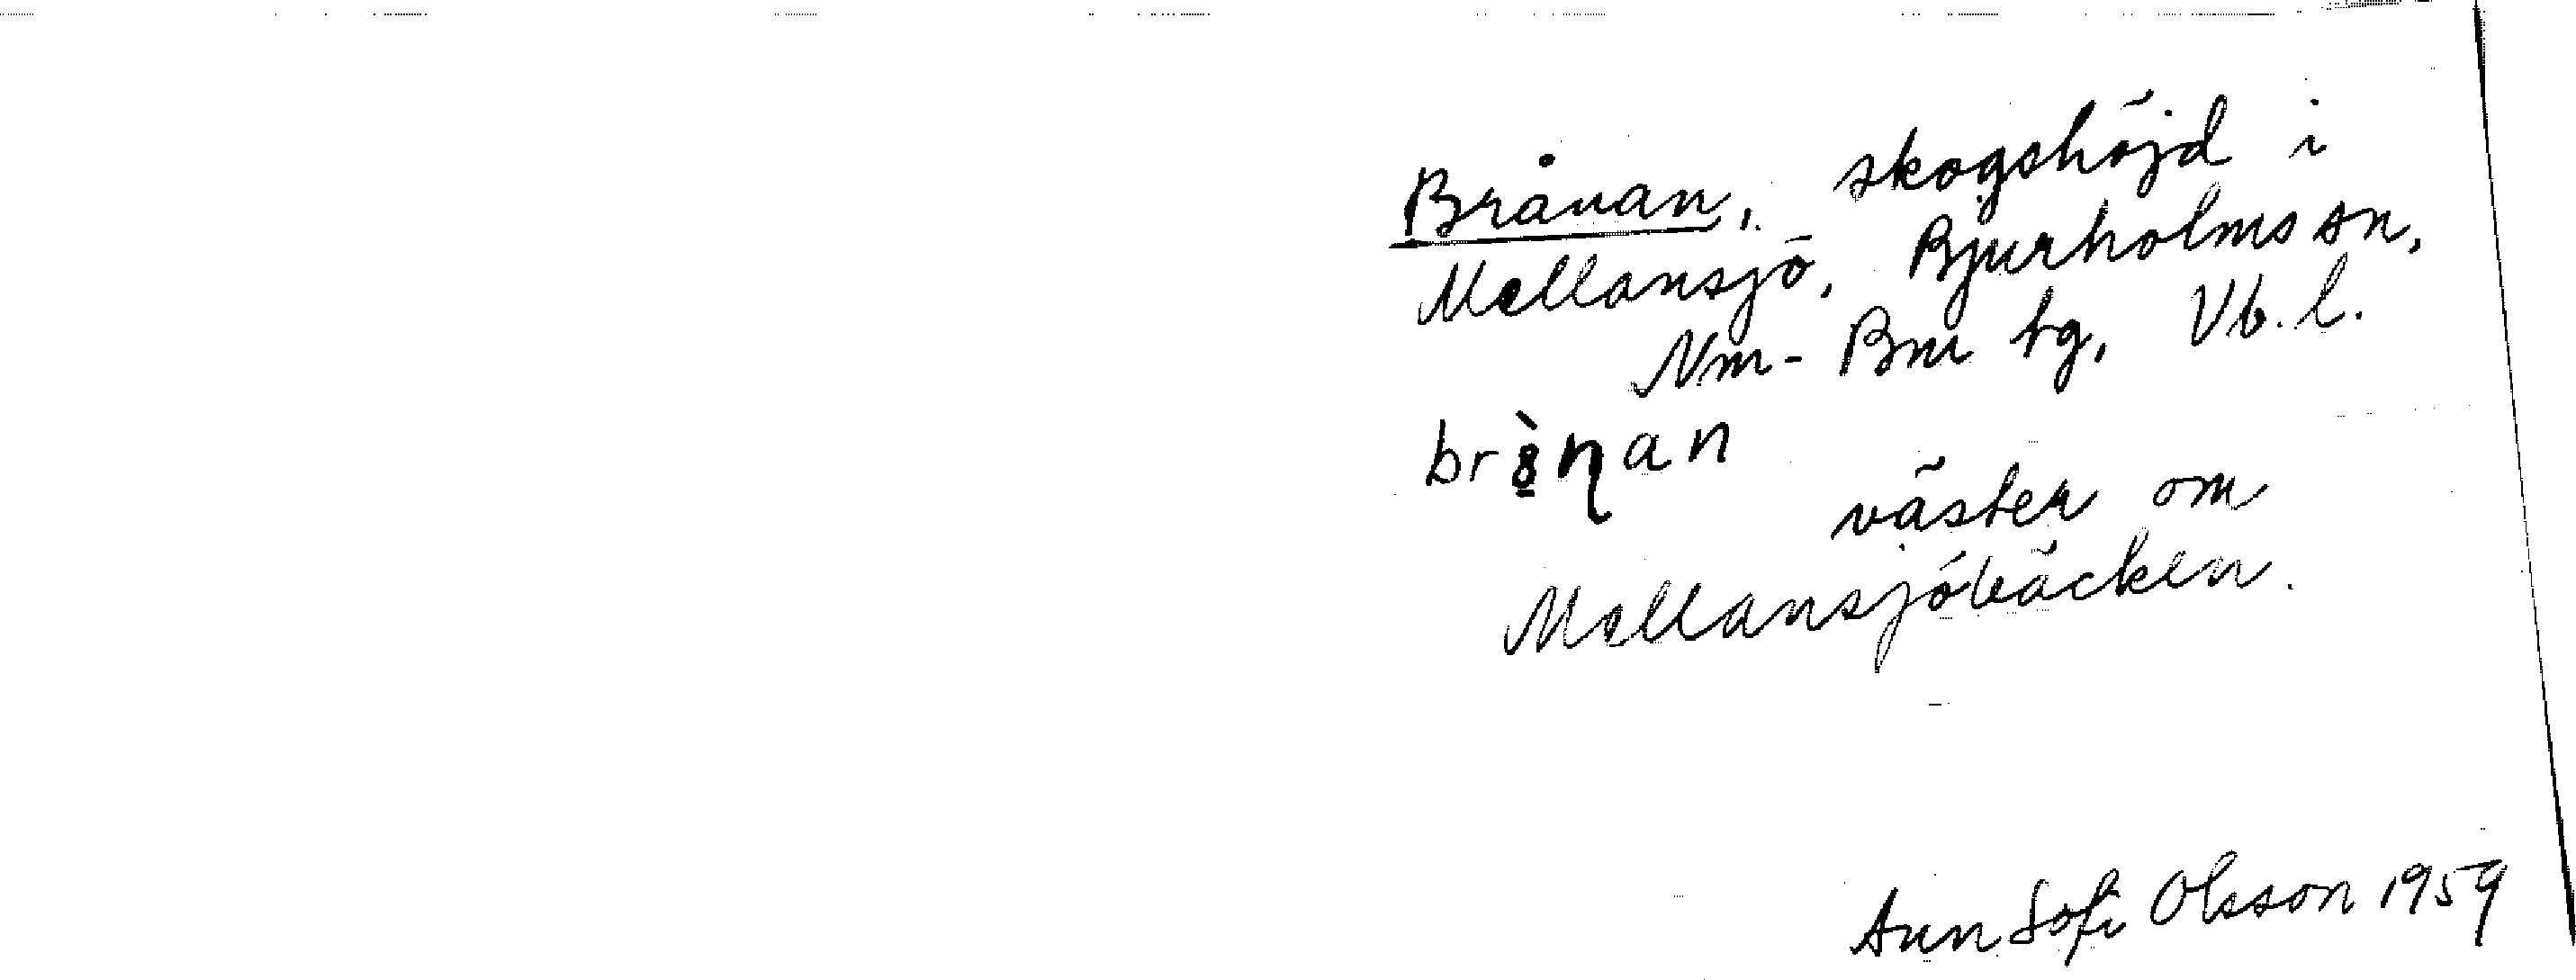 Brånan, skogshöjd i
Mellansjö, Bjurholms sn,
Nm-Bm tg, Vb. l.
väster om
Mellansjöbäcken.
Ann Sofi Olsson 1959